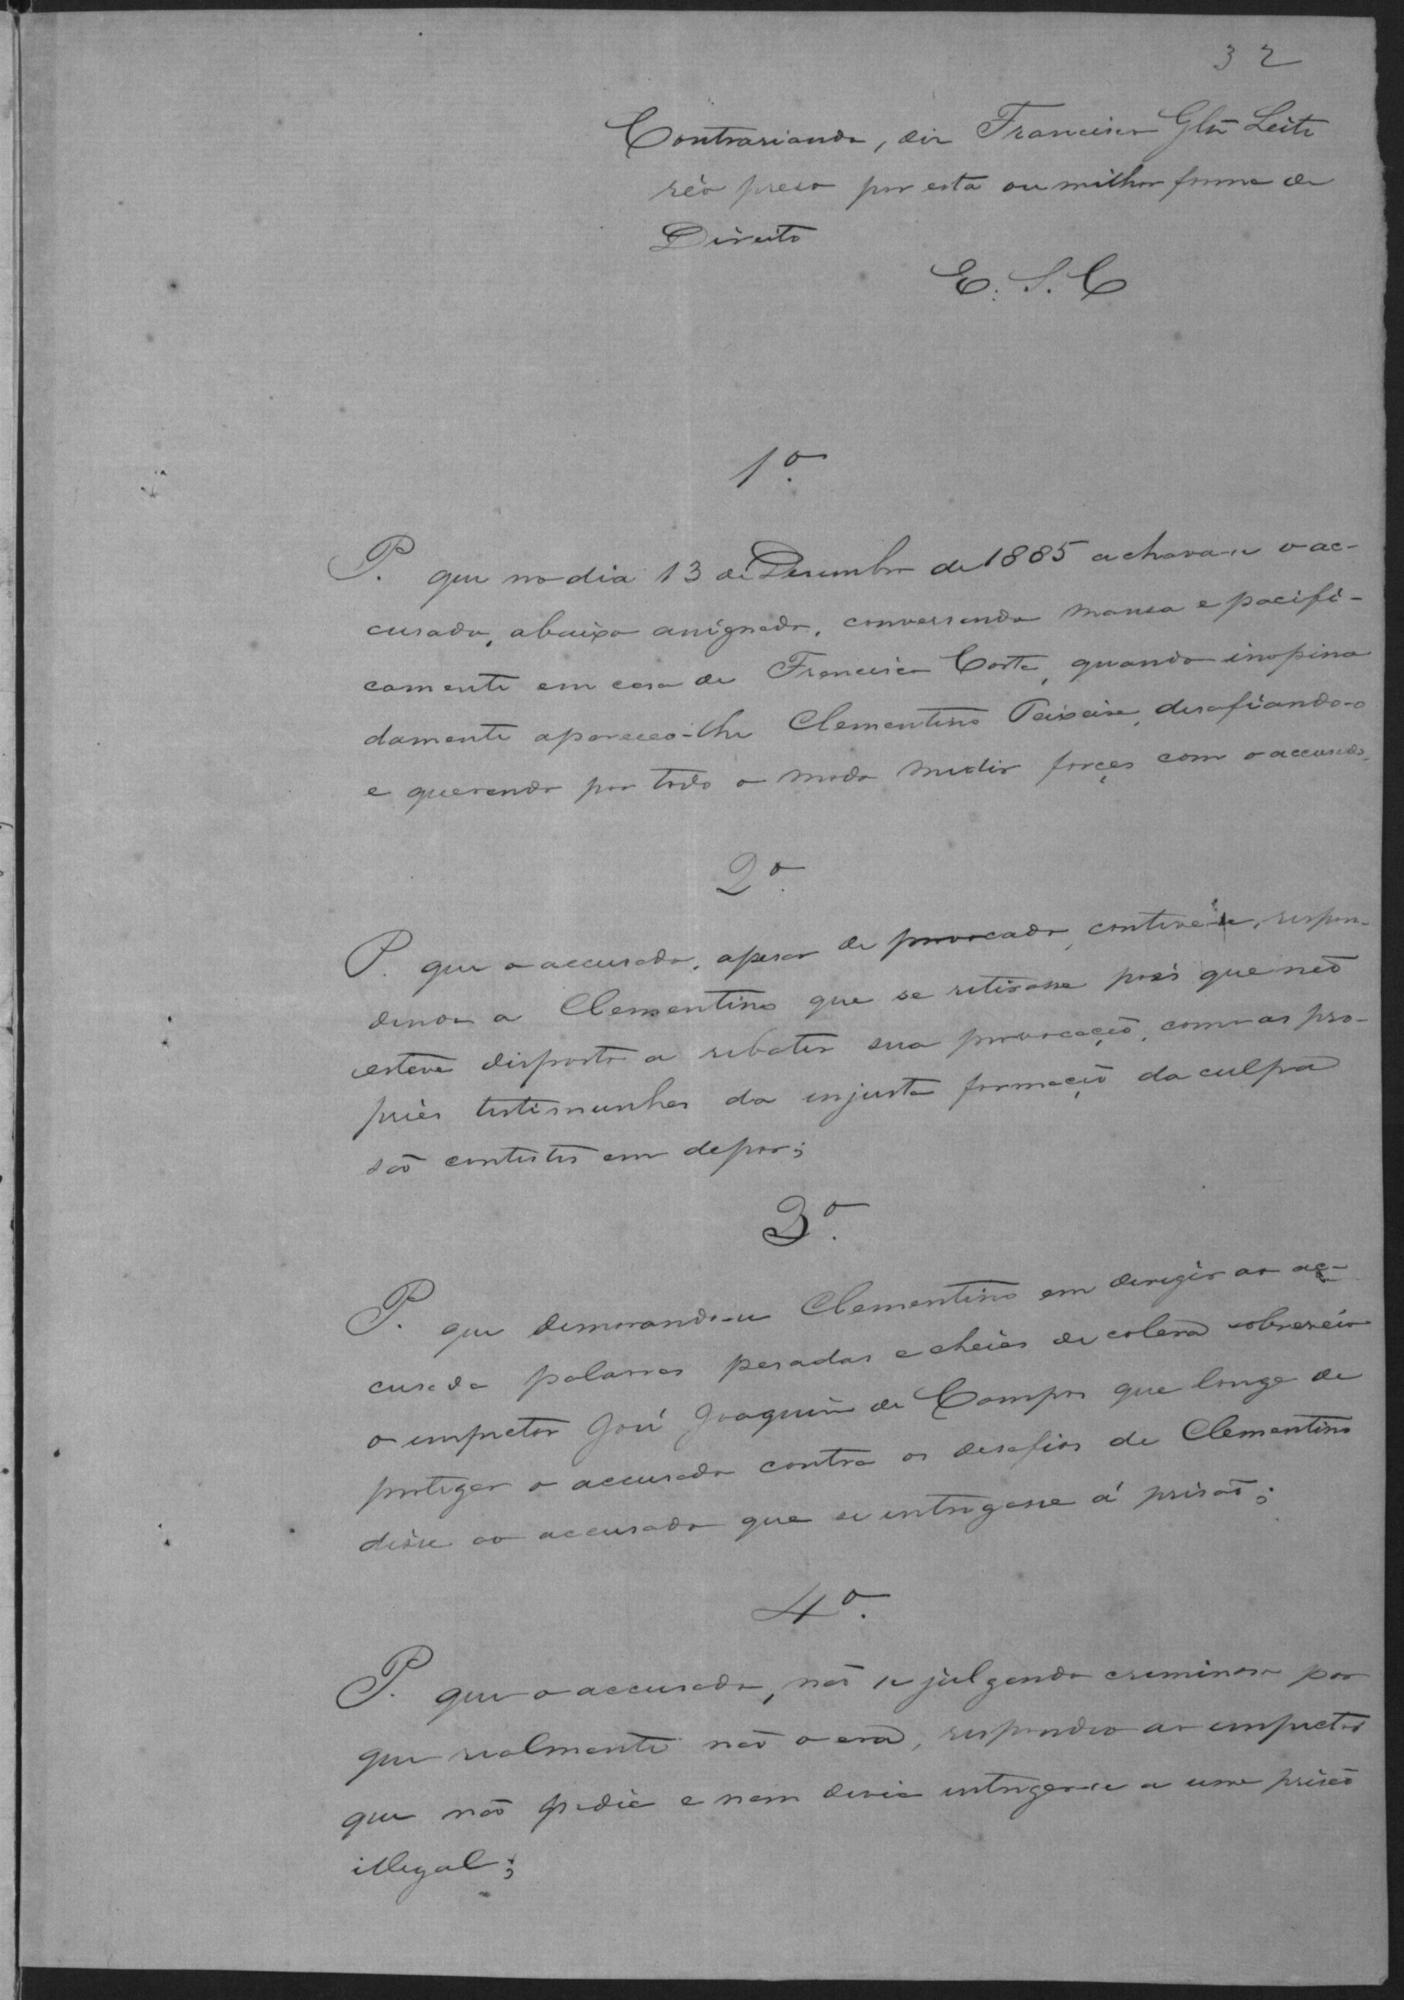 32
Contrariando, diz Francisco Glz Leite
réo preso por esta ou milhor forma de
Direito
E. S. C
1º.
P. que no dia 13 de Dezembro de 1885 achava-se o ac-
cusado, abaixo assignado, conversando mansa e pacifi-
camente em casa de Francisco Costa, quando inopina
damente appareceo-lhe Clementino Teixeira, desafiando-o
e querendo por todo o modo medir forças com o accusado.
2º.
P. que o accusado, apesar de provocado, conteve-se, respon-
dendo a Clementino que se retirasse pois que não
estava disposto a rebater sua provocação, como as pro-
prias testimunhas da injusta formação da culpa
são contestes em depor;
3º.
P. que demorando-se Clementino em dirigir ao ac-
cusado palavras pesadas e cheias de colera sobreveio
o inspector José Joaquim de Campos que longe de
proteger o accusado contra os desafios de Clementino
disse ao accusado que se entregasse á prisão;
4º.
P. que o accusado, não se julgando criminoso por
que realmente não o era, respondeo ao inspector
que não podia e nem devia entregar-se a uma prisão
illegal;